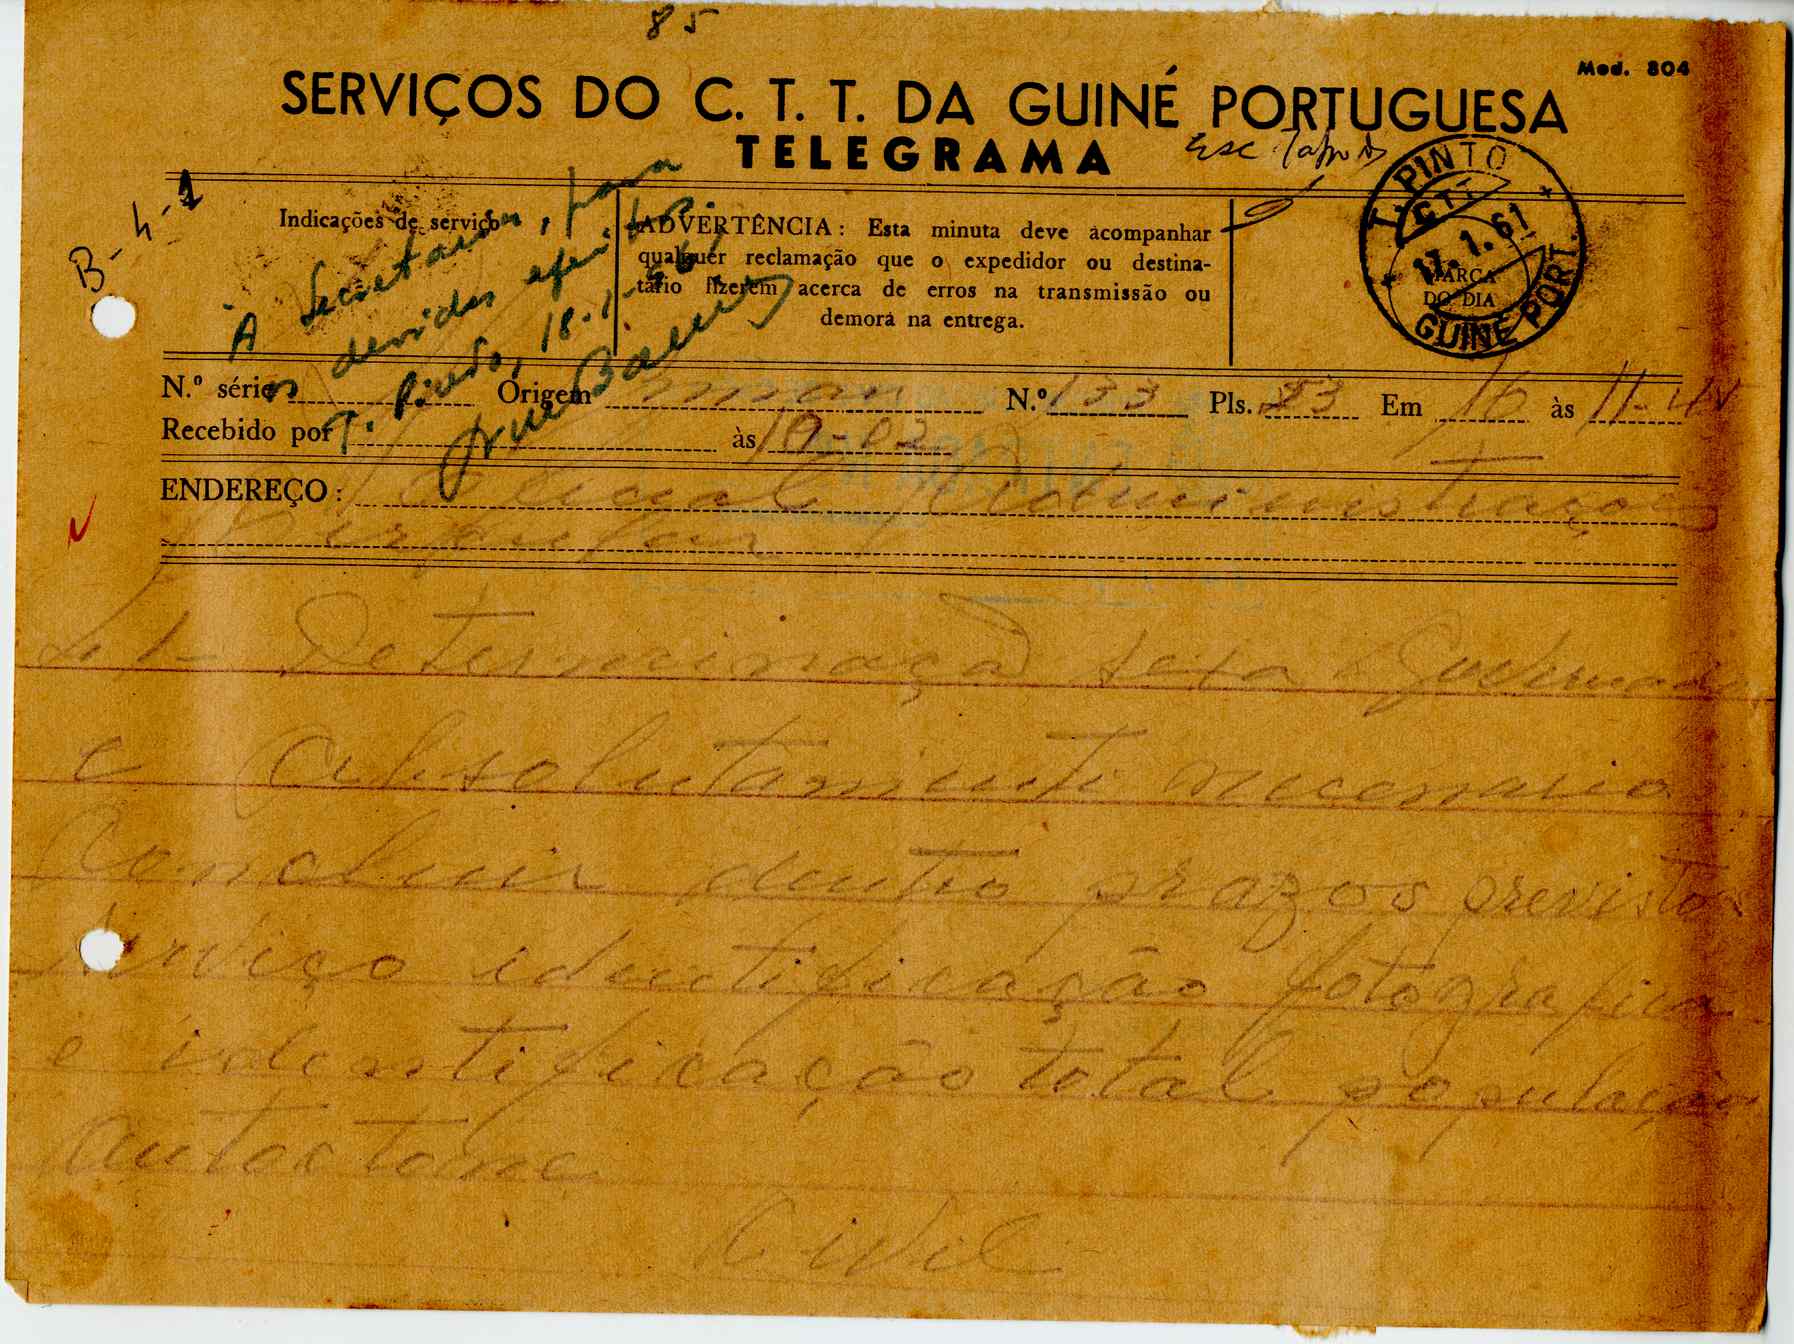 85
Mod. 804
SERVIÇOS DO C. T. T. DA GUINÉ PORTUGUESA
TELEGRAMA
T. PINTO
CTT
17.1.61
MARCA
DO DIA
GUINÉ PORT.
B-4-1
Indicações de serviço
À Secretaria, para
os devidos efeitos.
T. Pinto, 18-1-961
ADVERTÊNCIA: Esta minuta deve acompanhar
qualquer reclamação que o expedidor ou destina-
tário fizerem acerca de erros na transmissão ou
demora na entrega.
N.º série Origem N.º 133 Pls. 23 Em 16 às 11-
Recebido por às 19-02
ENDEREÇO: Oficial Administração
Circular
1- Determinação sexa Governador
e absolutamente necessario
Concluir dentro prazos previstos
serviço identificação fotografica
e identificação total população
autoctone
Civil